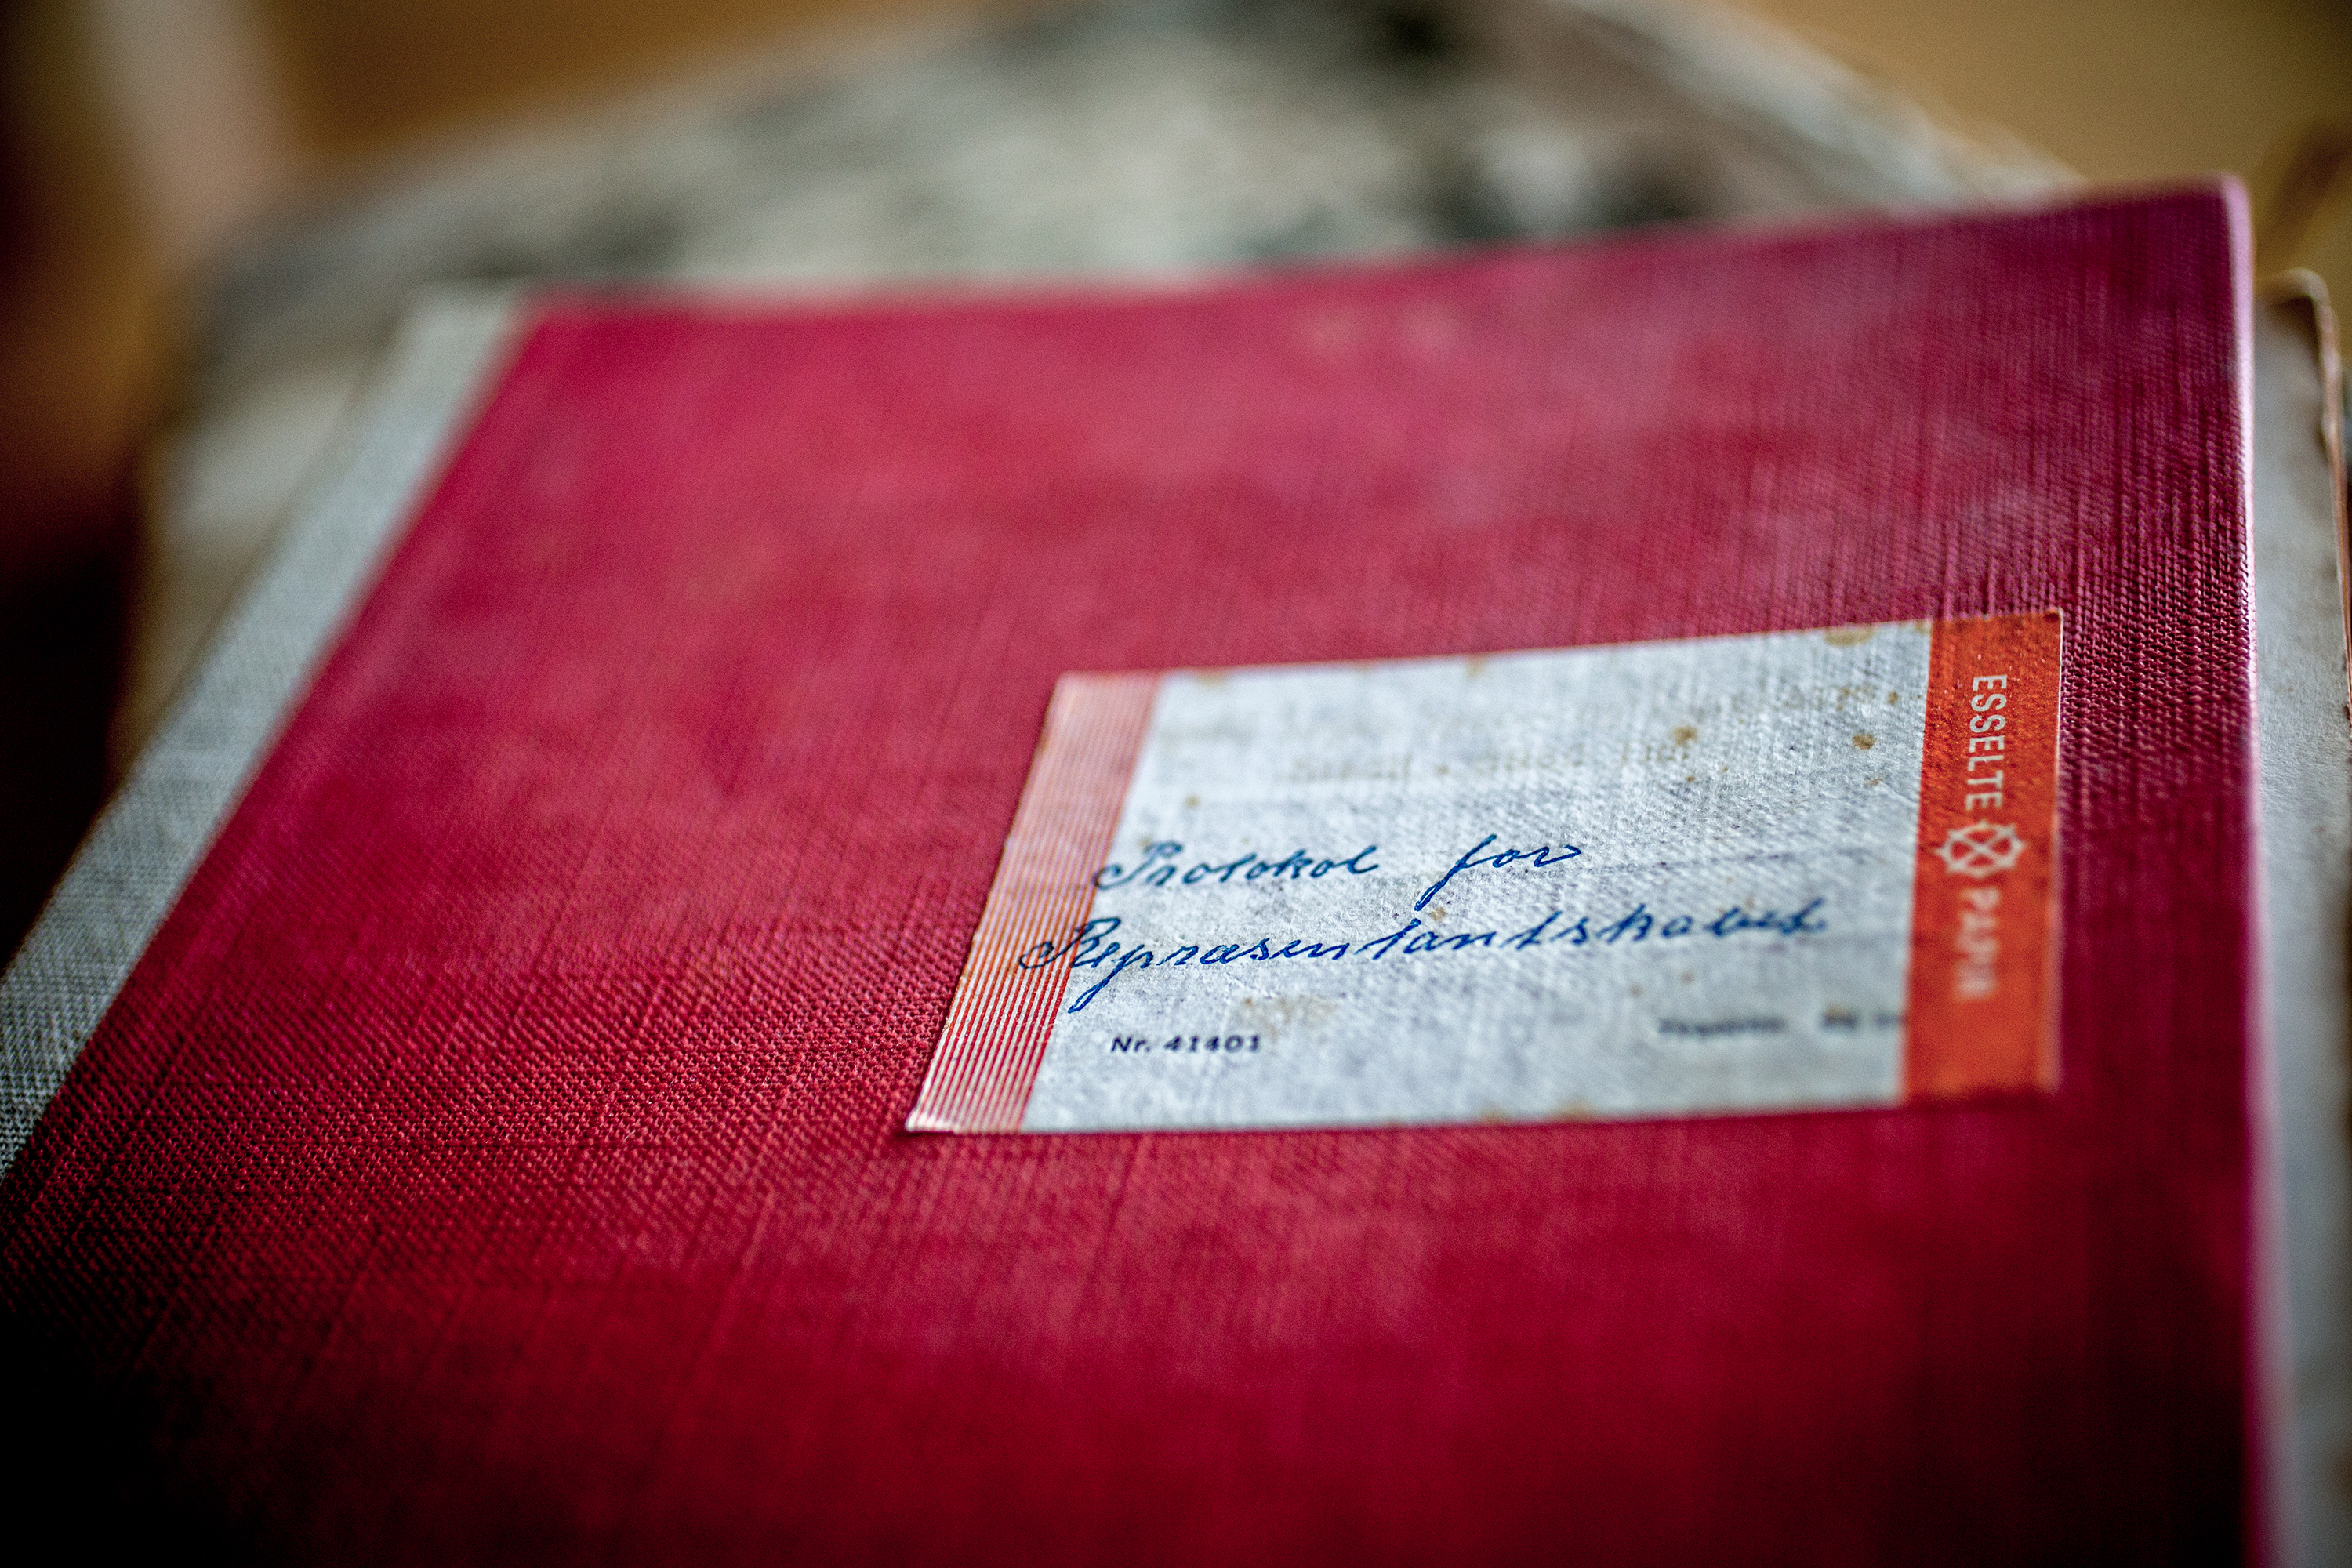 Protokol for
Repræsentantskabet.
Nr. 41401
ESSELTE PAPIR